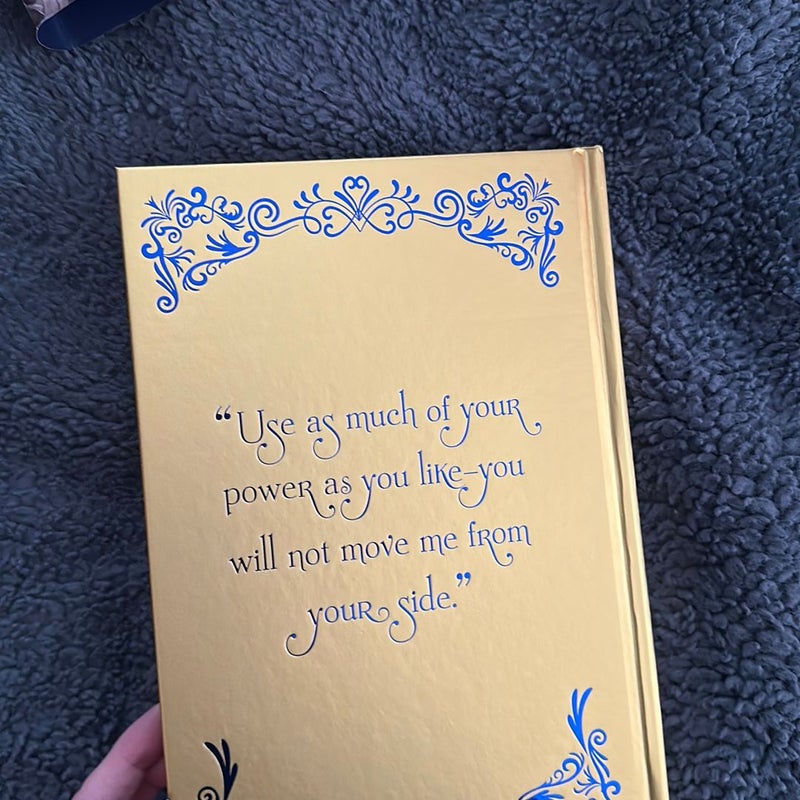 “Use as much of your
power as you like–you
will not move me from
your side.”